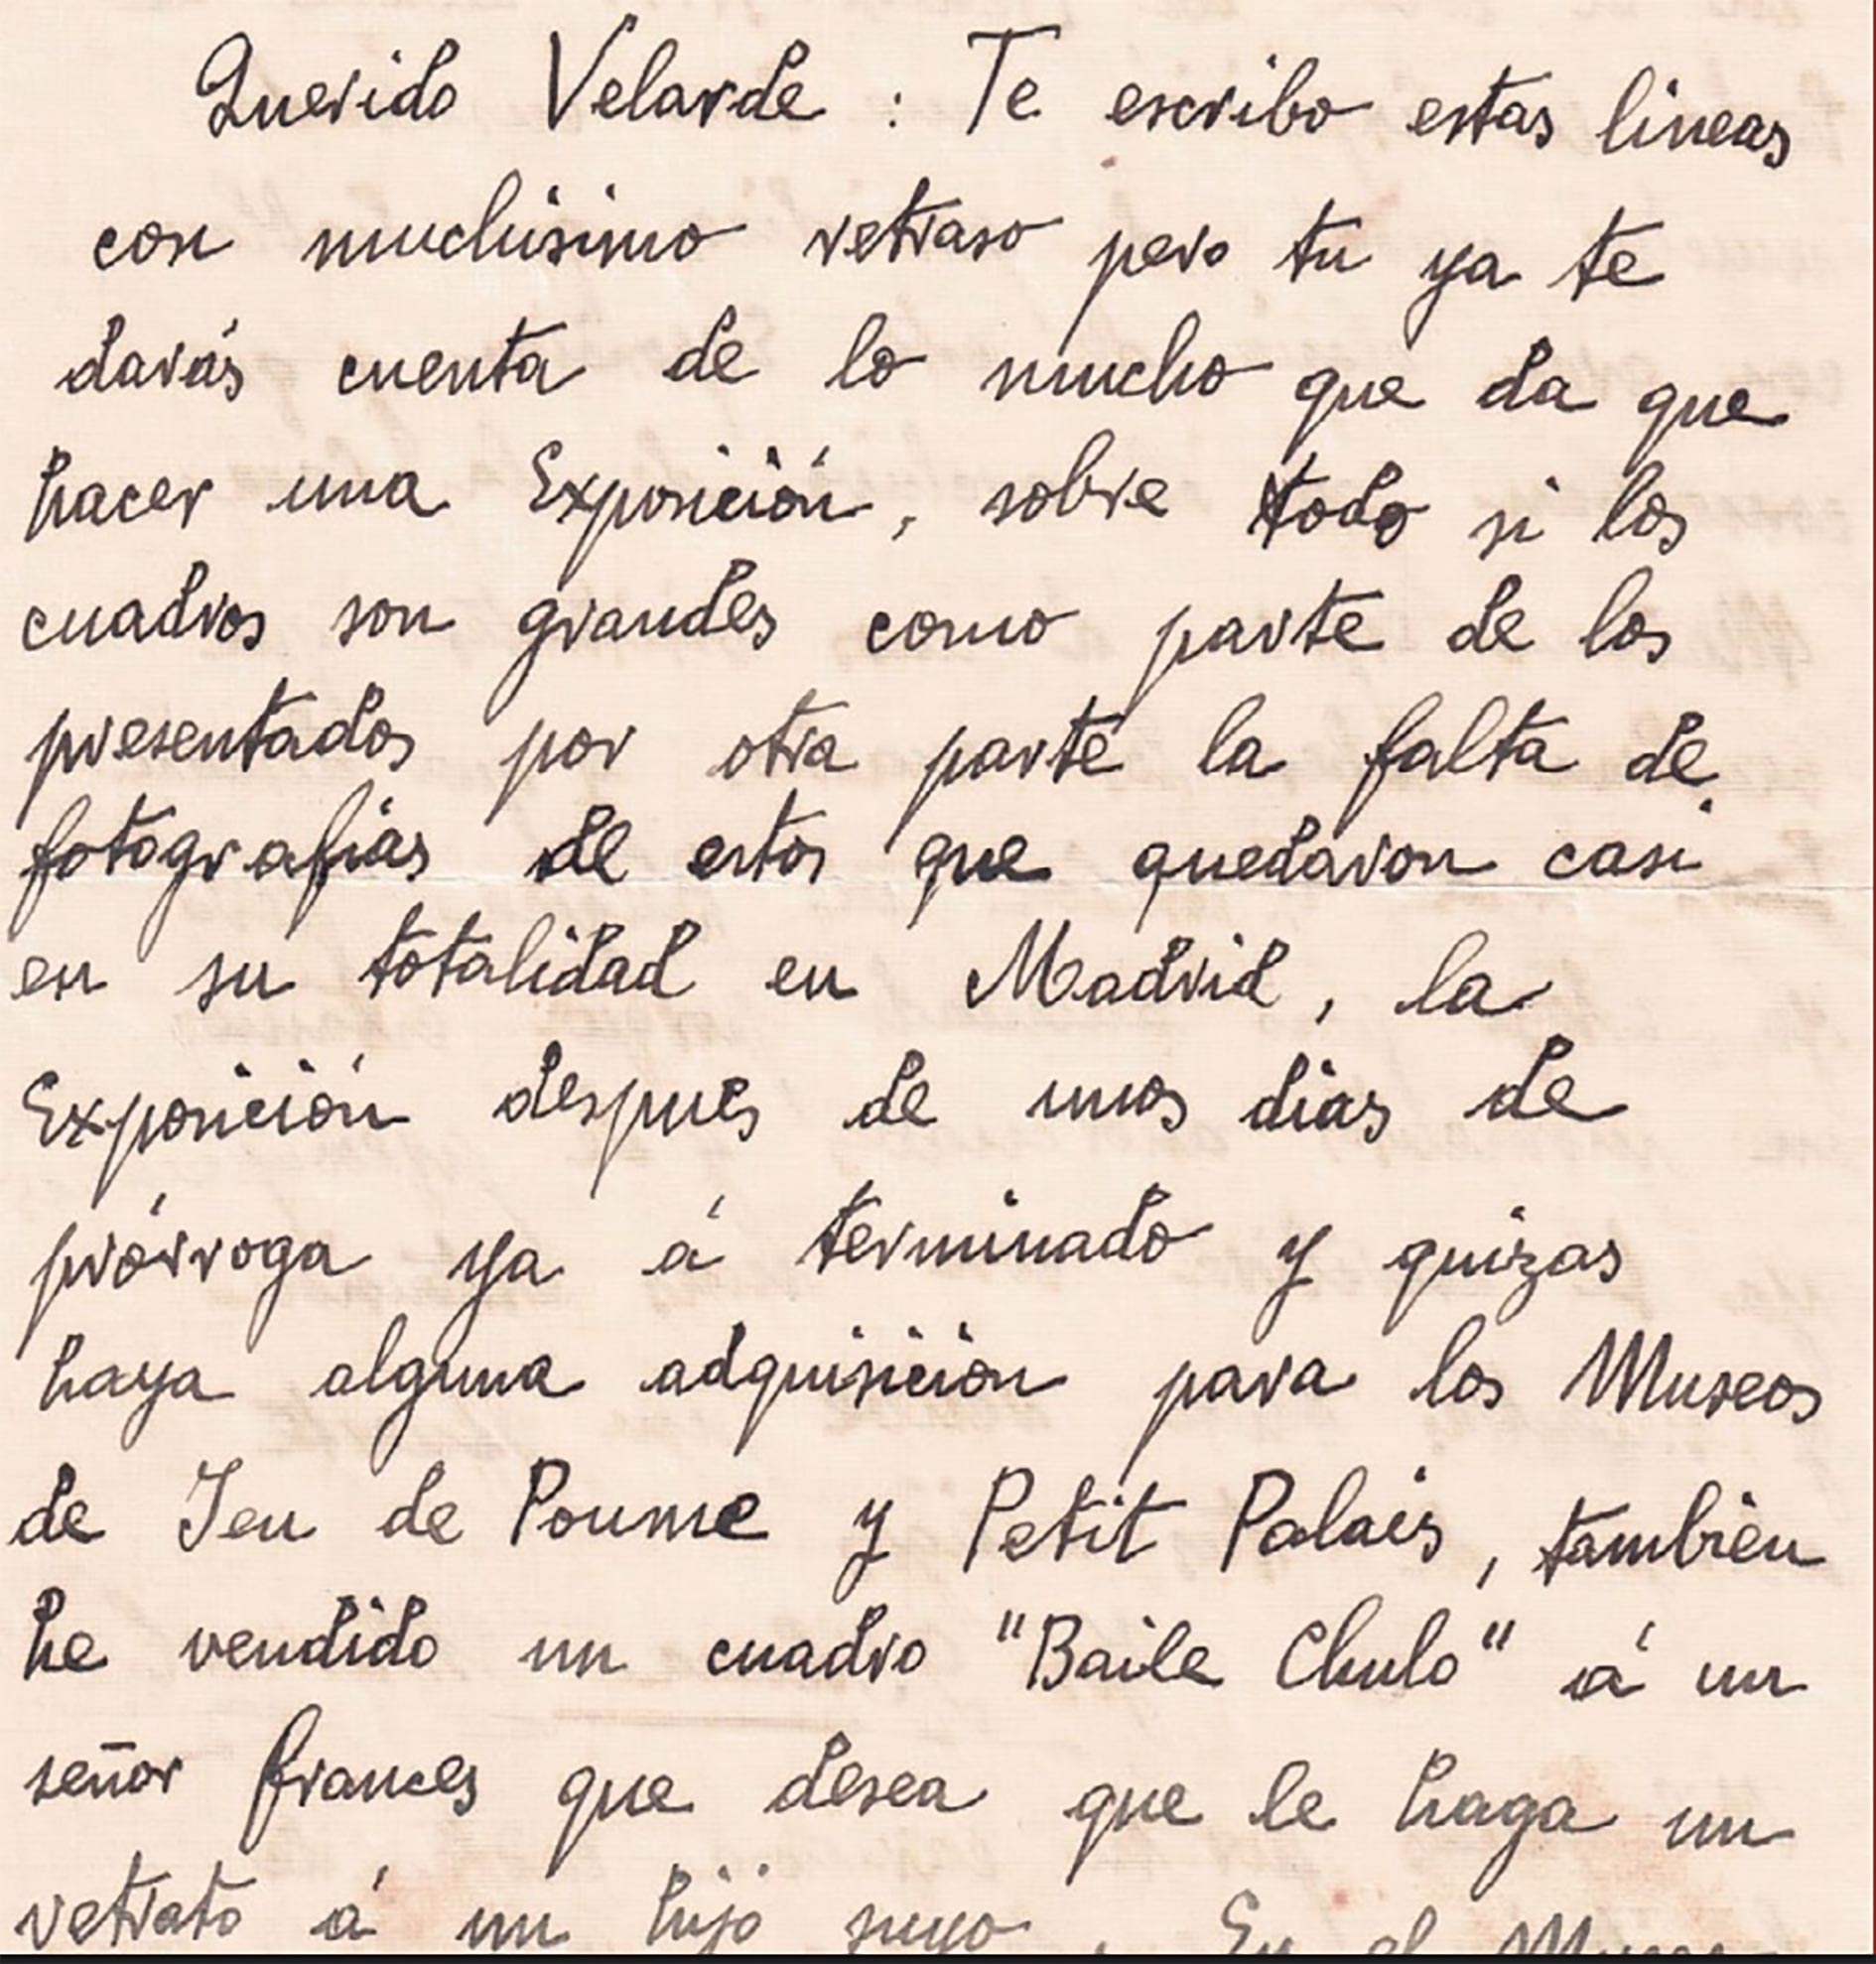 Querido Velarde : Te escribo estas lineas
con muchisimo retraso pero tu ya te
darás cuenta de lo mucho que da que
hacer una Exposición, sobre todo si los
cuadros son grandes como parte de los
presentados por otra parte la falta de
fotografias de estos que quedaron casi
en su totalidad en Madrid, la
Exposición despues de unos dias de
prórroga ya á terminado y quizas
haya alguna adquisicion para los Museos
de Jeu de Poume y Petit Palais, tambien
he vendido un cuadro "Baile Chulo" á un
señor frances que desea que le haga un
retrato á un hijo suyo. En el Museo